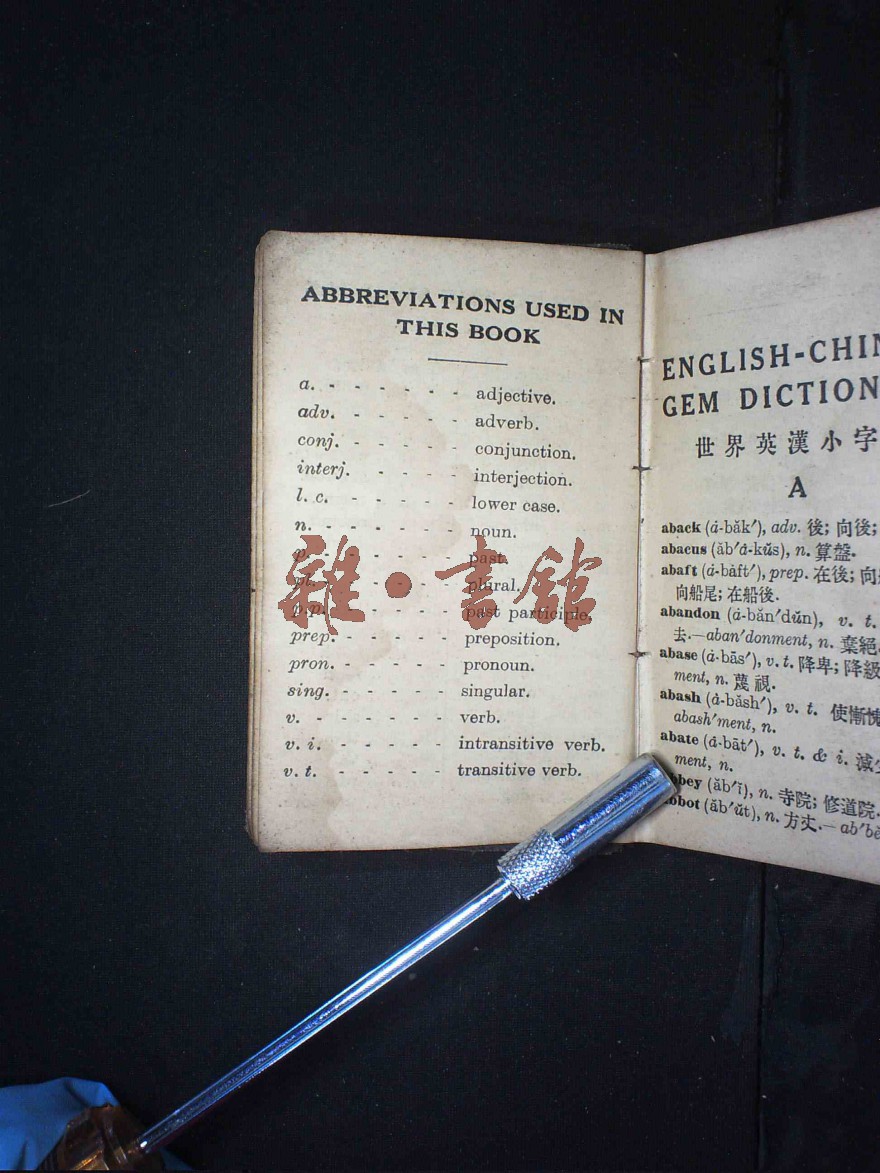 ABBREVIATIONS USED IN
THIS BOOK
a. - - - - - - adjective.
adv. - - - - - adverb.
conj. - - - - - conjunction.
interj. - - - - interjection.
l. c. - - - - - - lower case.
n. - - - - - - noun.
p. past.
pl. plural.
p.p. past participle.
prep. - - - - - preposition.
pron. - - - - - pronoun.
sing. - - - - - singular.
v. - - - - - - verb.
v. i. - - - - - intransitive verb.
v. t. - - - - - transitive verb.
雜·書館
ENGLISH-CHIN
GEM DICTION
世界英漢小字
A
aback (ȧ-băk′), adv. 後; 向後;
abacus (ăb′ȧ-kŭs), n. 算盤.
abaft (ȧ-bȧft′), prep. 在後; 向
向船尾; 在船後.
abandon (ȧ-băn′dŭn), v. t.
去.—aban′donment, n. 棄絕
abase (ȧ-bās′), v. t. 降卑; 降級
ment, n. 蔑視.
abash (ȧ-băsh′), v. t. 使慚愧
abash′ment, n.
abate (ȧ-bāt′), v. t. & i. 減
ment, n.
bbey (ăb′ĭ), n. 寺院; 修道院.
bbot (ăb′ŭt), n. 方丈.— ab′b